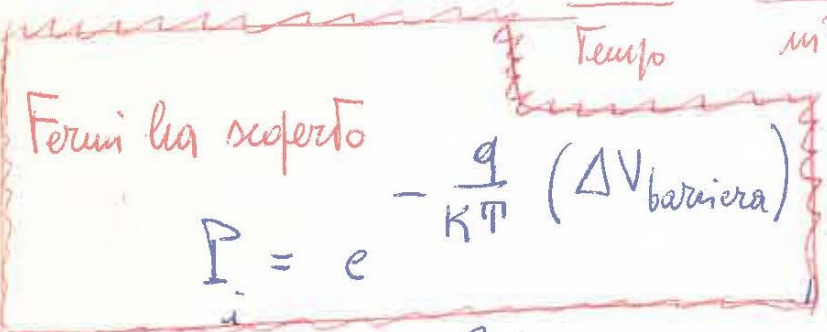 Tempo
Fermi ha scoperto
P_i = e^{- \frac{q}{KT} (ΔV_{barriera})}